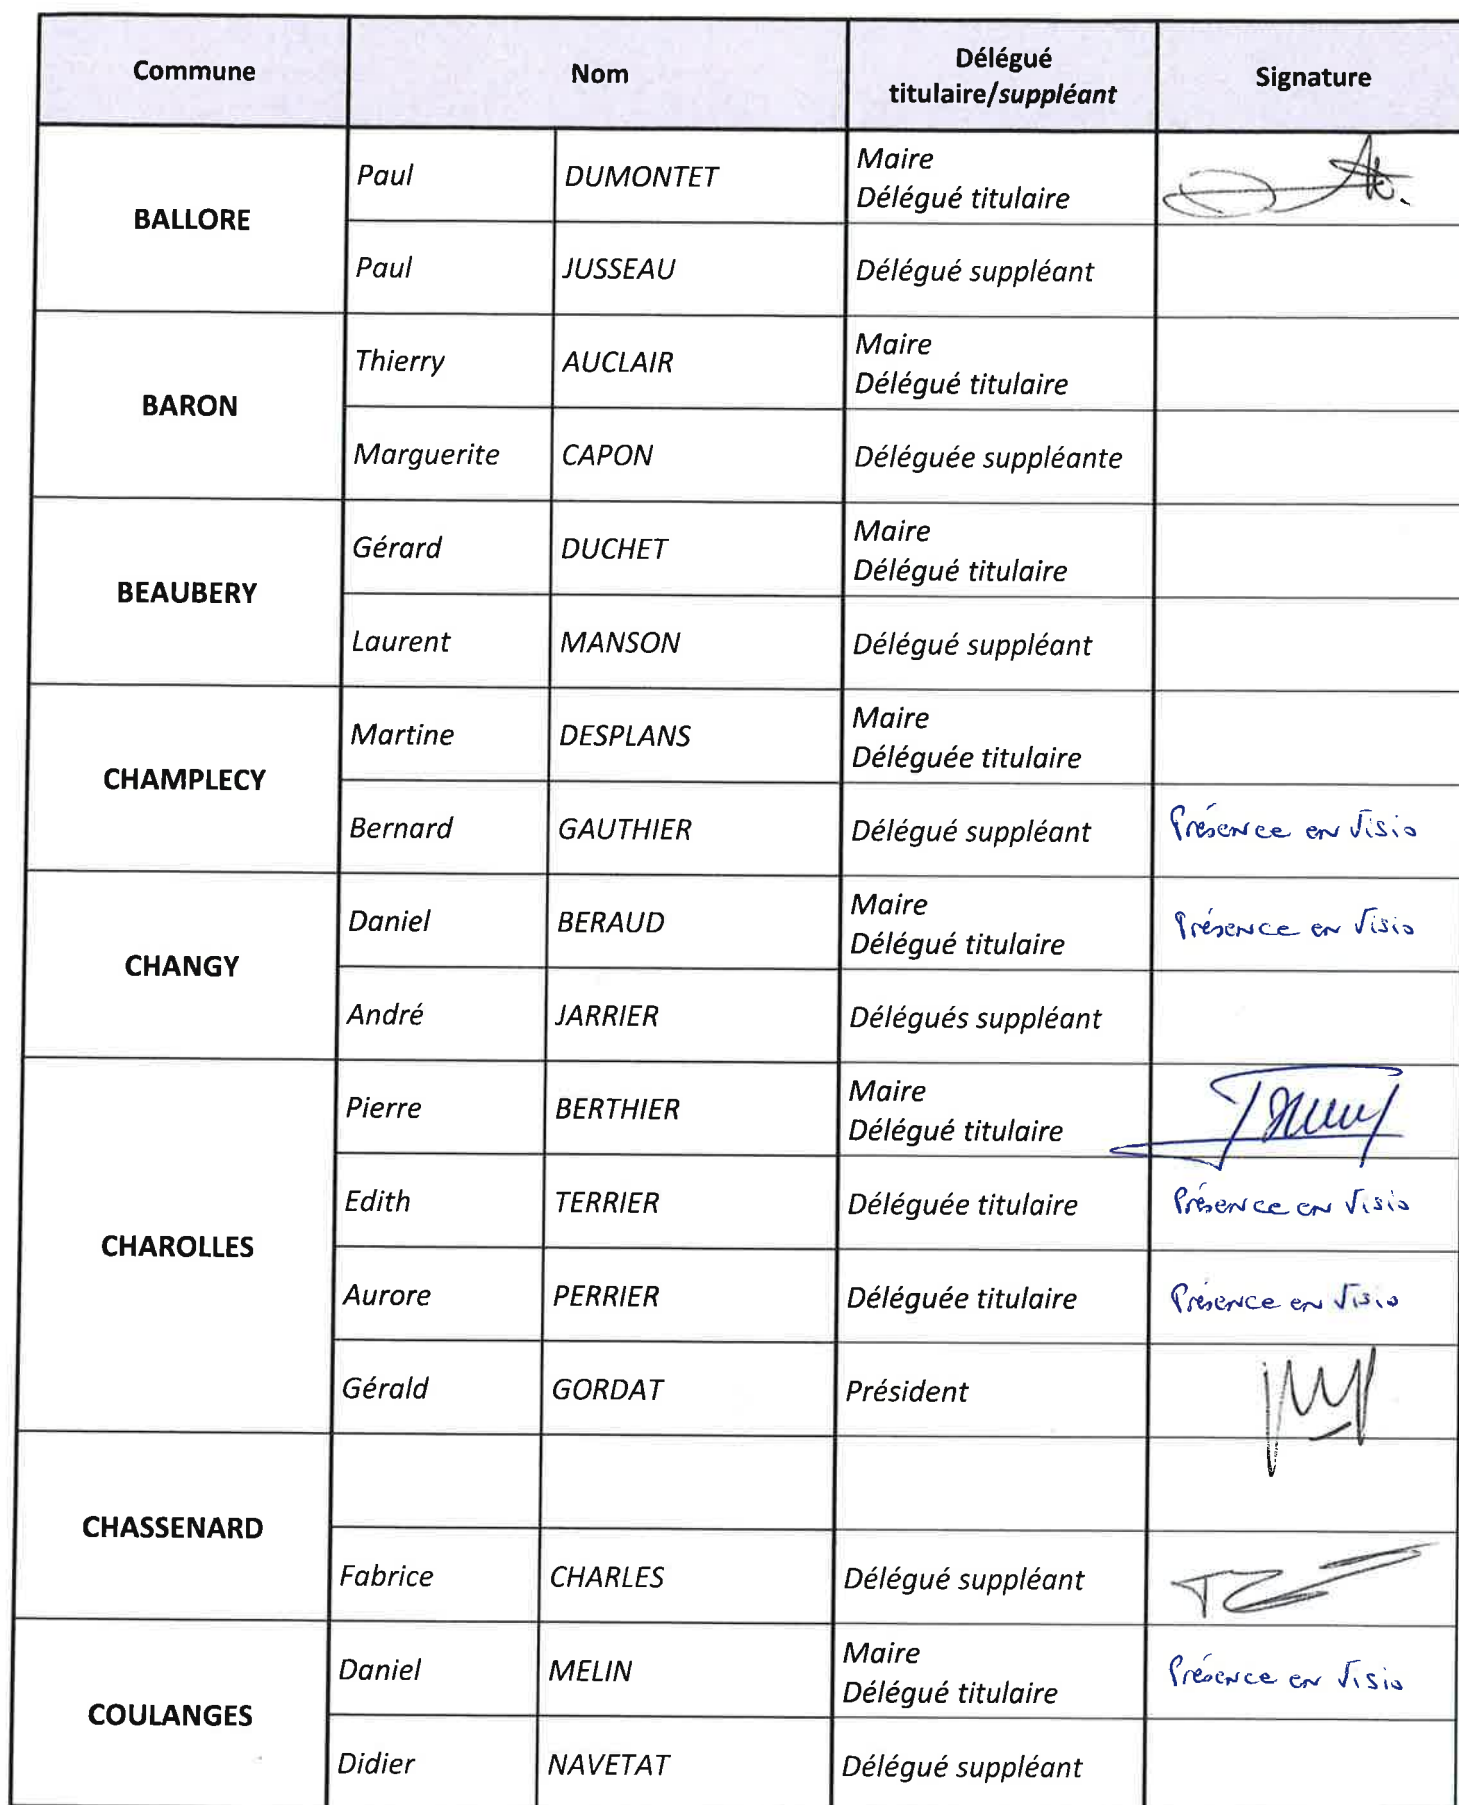 Commune
Nom
Délégué
titulaire/suppléant
Signature
BALLORE
Paul DUMONTET
Maire
Délégué titulaire
Paul JUSSEAU Délégué suppléant
BARON
Thierry AUCLAIR
Maire
Délégué titulaire
Marguerite CAPON Déléguée suppléante
BEAUBERY
Gérard DUCHET
Maire
Délégué titulaire
Laurent MANSON Délégué suppléant
CHAMPLECY
Martine DESPLANS
Maire
Déléguée titulaire
Bernard GAUTHIER Délégué suppléant Présence en Visio
CHANGY
Daniel BERAUD
Maire
Délégué titulaire
Présence en Visio
André JARRIER Délégués suppléant
CHAROLLES
Pierre BERTHIER
Maire
Délégué titulaire
Edith TERRIER Déléguée titulaire Présence en Visio
Aurore PERRIER Déléguée titulaire Présence en Visio
Gérald GORDAT Président
CHASSENARD
Fabrice CHARLES Délégué suppléant
COULANGES
Daniel MELIN
Maire
Délégué titulaire
Présence en Visio
Didier NAVETAT Délégué suppléant